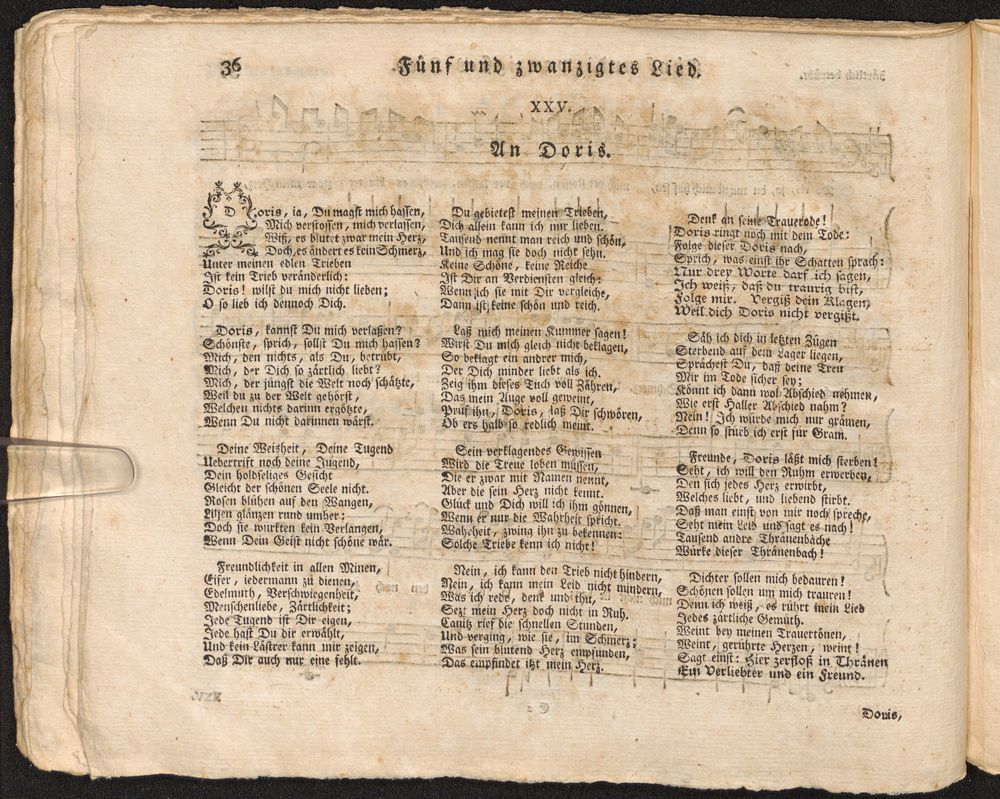 36
Fünf und zwanzigtes Lied.
XXV.
An Doris.
Doris, ia, Du magst mich hassen,
Mich verstossen, mich verlassen,
Wiß, es blutet zwar mein Herz,
Doch, es ändert es kein Schmerz,
Unter meinen edlen Trieben
Ist kein Trieb veränderlich:
Doris! wilst du mich nicht lieben;
O so lieb ich dennoch Dich.
Doris, kannst Du mich verlaßen?
Schönste, sprich, sollst Du mich hassen?
Mich, den nichts, als Du, betrübt,
Mich, der Dich so zärtlich liebt?
Mich, der jüngst die Welt noch schätzte,
Weil du zu der Welt gehörst,
Welchen nichts darinn ergötzte,
Wenn Du nicht darinnen wärst.
Deine Weisheit, Deine Tugend
Uebertrift noch deine Jugend,
Dein holdseliges Gesicht
Gleicht der schönen Seele nicht.
Rosen blühen auf den Wangen,
Liljen glänzen rund umher;
Doch sie würkten kein Verlangen,
Wenn Dein Geist nicht schöne wär.
Freundlichkeit in allen Minen,
Eifer, iedermann zu dienen,
Edelmuth, Verschwiegenheit,
Menschenliebe, Zärtlichkeit;
Jede Tugend ist Dir eigen,
Jede hast Du dir erwählt,
Und kein Lästrer kann mir zeigen,
Daß Dir auch nur eine fehlt.
Du gebietest meinen Trieben,
Dich allein kann ich nur lieben.
Tausend nennt man reich und schön,
Und ich mag sie doch nicht sehn.
Keine Schöne, keine Reiche
Ist Dir an Verdiensten gleich:
Wenn ich sie mit Dir vergleiche,
Dann ist keine schön und reich.
Laß mich meinen Kummer sagen!
Wirst Du mich gleich nicht beklagen,
So beklagt ein andrer mich,
Der Dich minder liebt als ich.
Zeig ihm dieses Tuch voll Zähren,
Das mein Auge voll geweint,
Prüf ihn, Doris, laß Dir schwören,
Ob ers halb so redlich meint.
Sein verklagendes Gewissen
Wird die Treue loben müssen,
Die er zwar mit Namen nennt,
Aber die sein Herz nicht kennt.
Glück und Dich will ich ihm gönnen,
Wenn er nur die Wahrheit spricht.
Wahrheit, zwing ihn zu bekennen:
Solche Triebe kenn ich nicht!
Nein, ich kann den Trieb nicht hindern,
Nein, ich kann mein Leid nicht mindern,
Was ich rede, denk und thu,
Sezt mein Herz doch nicht in Ruh.
Canitz rief die schnellen Stunden,
Und verging, wie sie, im Schmerz;
Was sein blutend Herz empfunden,
Das empfindet itzt mein Herz.
Denk an seine Trauerode!
Doris ringt noch mit dem Tode:
Folge dieser Doris nach,
Sprich, was einst ihr Schatten sprach:
Nur drey Worte darf ich sagen,
Ich weiß, daß du traurig bist,
Folge mir. Vergiß dein Klagen,
Weil dich Doris nicht vergißt.
Säh ich dich in letzten Zügen
Sterbend auf dem Lager liegen,
Sprächest Du, daß deine Treu
Mir im Tode sicher sey;
Könnt ich dann wol Abschied nehmen,
Wie erst Haller Abschied nahm?
Nein! Ich würde mich nur grämen,
Denn so stürb ich erst für Gram.
Freunde, Doris läßt mich sterben!
Seht, ich will den Ruhm erwerben,
Den sich jedes Herz erwirbt,
Welches liebt, und liebend stirbt.
Daß man einst von mir noch spreche,
Seht mein Leid und sagt es nach!
Tausend andre Thränenbäche
Würke dieser Thränenbach!
Dichter sollen mich bedauren!
Schönen sollen um mich trauren!
Denn ich weiß, es rührt mein Lied
Jedes zärtliche Gemüth.
Weint bey meinen Trauertönen,
Weint, gerührte Herzen, weint!
Sagt einst: Hier zerfloß in Thränen
Ein Verliebter und ein Freund.
Doris,